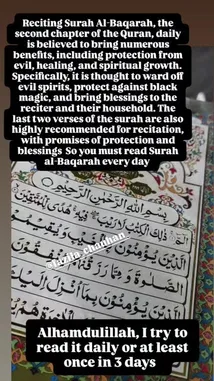 Reciting Surah Al-Baqarah, the
second chapter of the Quran, daily
is believed to bring numerous
benefits, including protection from
evil, healing, and spiritual growth.
Specifically, it is thought to ward off
evil spirits, protect against black
magic, and bring blessings to the
reciter and their household. The
last two verses of the surah are also
highly recommended for recitation,
with promises of protection and
blessings So you must read Surah
al-Baqarah every day
بِسْمِ اللّٰهِ الرَّحْمٰنِ الرَّحِيْمِ
الٓمّٓ ذٰلِكَ الْكِتٰبُ لَا رَيْبَ فِيْهِ هُدًى لِّلْمُتَّقِيْنَ
الَّذِيْنَ يُؤْمِنُوْنَ بِالْغَيْبِ وَيُقِيْمُوْنَ
الصَّلٰوةَ وَمِمَّا رَزَقْنٰهُمْ يُنْفِقُوْنَ
وَالَّذِيْنَ يُؤْمِنُوْنَ بِمَآ اُنْزِلَ اِلَيْكَ
Alhamdulillah, I try to
read it daily or at least
once in 3 days